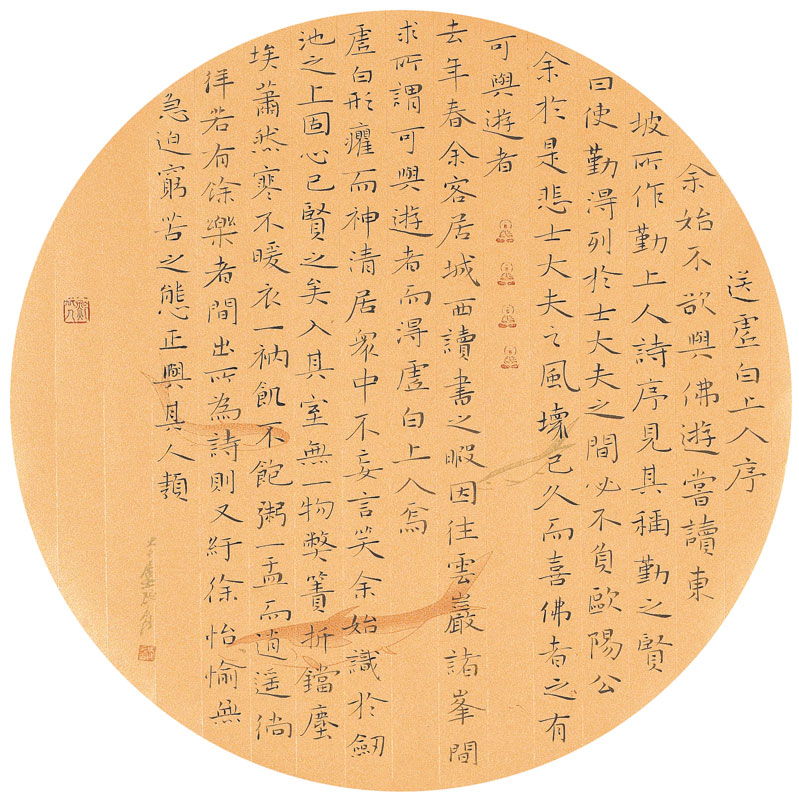 送虛白上人序
余始不欲與佛遊嘗讀東
坡所作勤上人詩序見其稱勤之賢
曰使勤得列於士大夫之間必不負歐陽公
余於是悲士大夫之風壞已久而喜佛者之有
可與遊者
去年春余客居城西讀書之暇因往雲巖諸峯間
求所謂可與遊者而得虛白上人焉
虛白形癯而神清居眾中不妄言笑余始識於劒
池之上固心已賢之矣入其室無一物弊簀折鐺塵
埃蕭然寒不暖衣一衲飢不飽粥一盂而逍遙徜
徉若有餘樂者間出所為詩則又紆徐怡愉無
急迫窮苦之態正與其人類